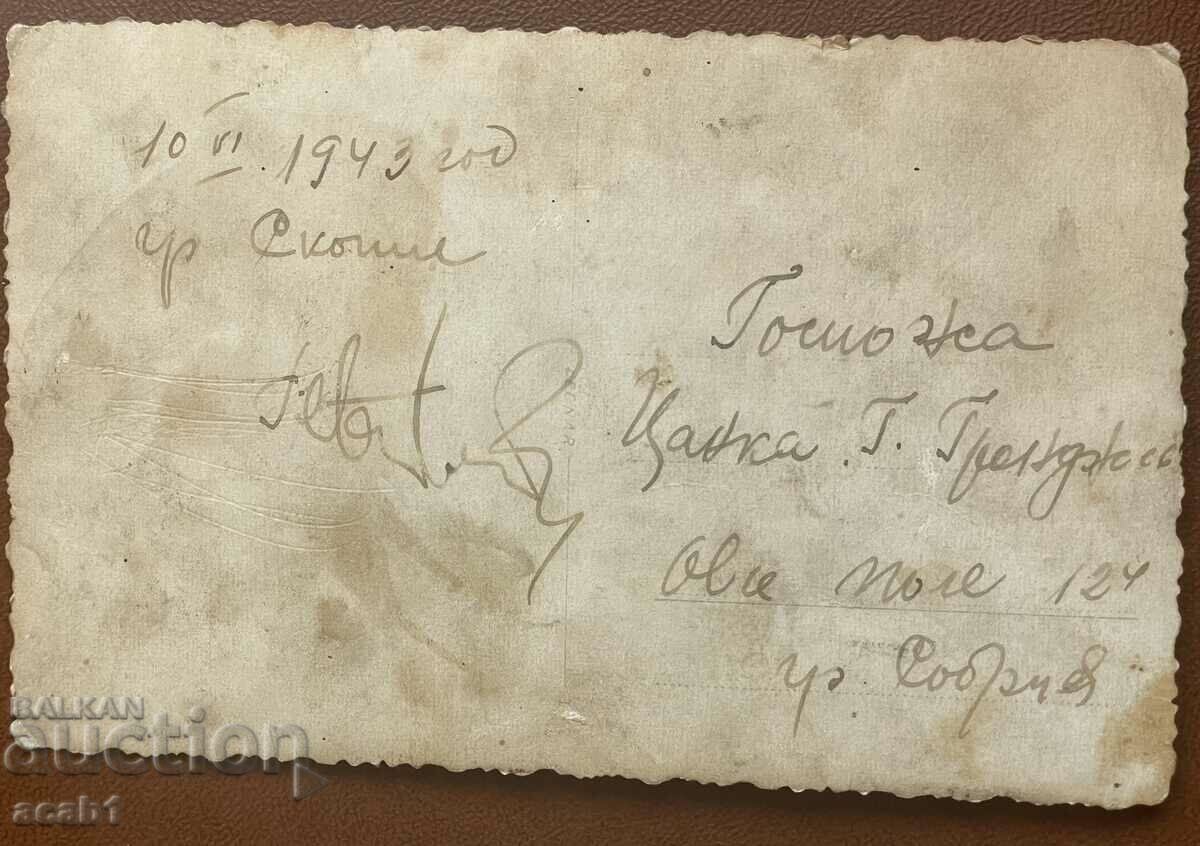 10 VI. 1943 год
гр Скопие
Госпожа
Цанка Г.
Овче поле 124
гр.
BALKAN
auction
acab1